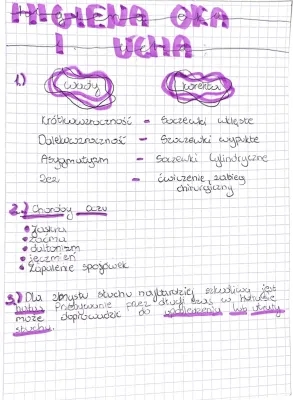 HIGIENA OKA
I UCHA
1.) Wady korekta
Krótkowzroczność - Soczewki wklęsłe
Dalekowzroczność - Soczewki wypukłe
Astygmatyzm - Soczewki cylindryczne
Zez - ćwiczenie, zabieg
chirurgiczny
2.) Choroby oczu
• Jaskra
• Zaćma
• daltonizm
• jęczmień
• Zapalenie spojówek
3.) Dla zmysłu słuchu najbardziej szkodliwy jest
hałas. Przebywanie przez długi czas w hałasie
może doprowadzić do lub utraty
słuchu.